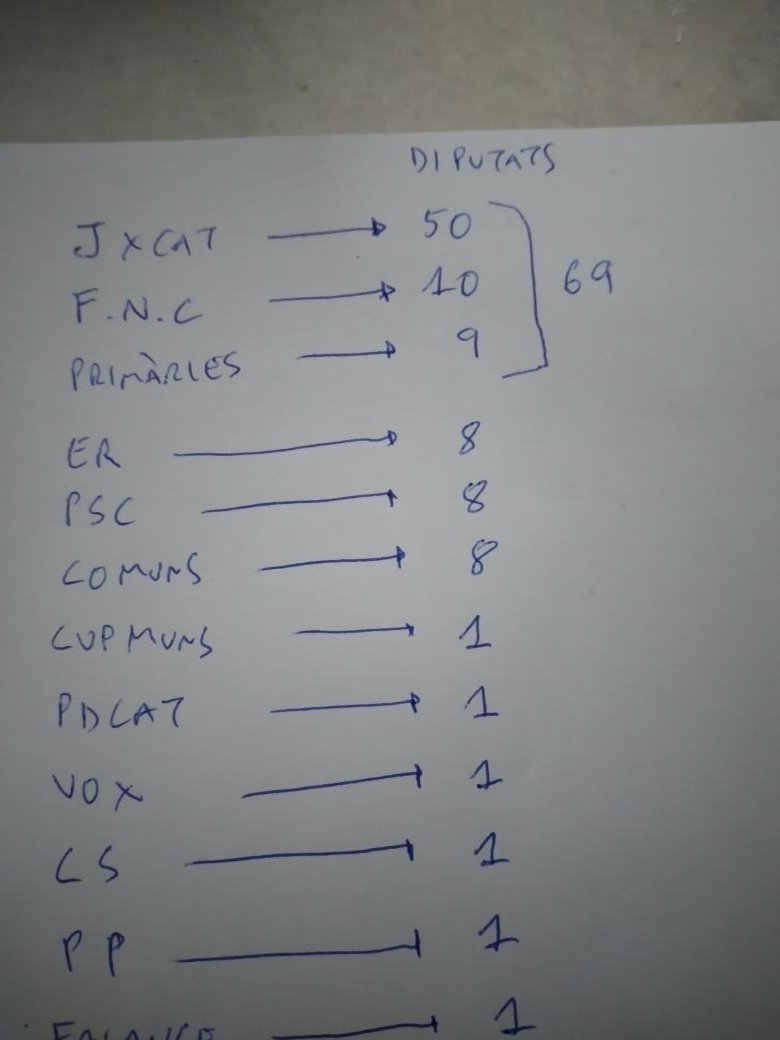 DIPUTATS
JXCAT → 50
F.N.C → 10
69
PRIMÀRIES → 9
ER → 8
PSC → 8
COMUNS → 8
CUPMUNS → 1
PDCAT → 1
VOX → 1
CS → 1
PP → 1
→ 1